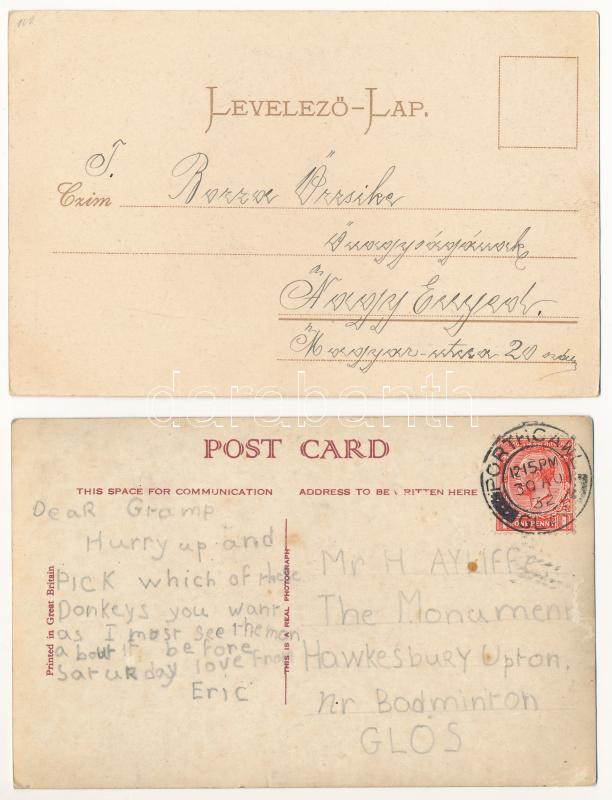 LEVELEZŐ-LAP.
T.
Czim Bozza Őrzsike
őnagyságának
Nagy Enyed.
Magyar-utcza 20 szám
darabanth
POST CARD
THIS SPACE FOR COMMUNICATION
ADDRESS TO BE WRITTEN HERE
PORTHCAWL
12.15 PM
30 AU
32
GLAM
ONE PENNY
Dear Gramp
Hurry up and
PICK which of these
Donkeys you want
as I most see the man
about it before
Saturday love from
Eric
Printed in Great Britain
THIS IS A REAL PHOTOGRAPH
Mr H AYLIFFE
The Monument
Hawkesbury Upton,
nr Badminton
GLOS